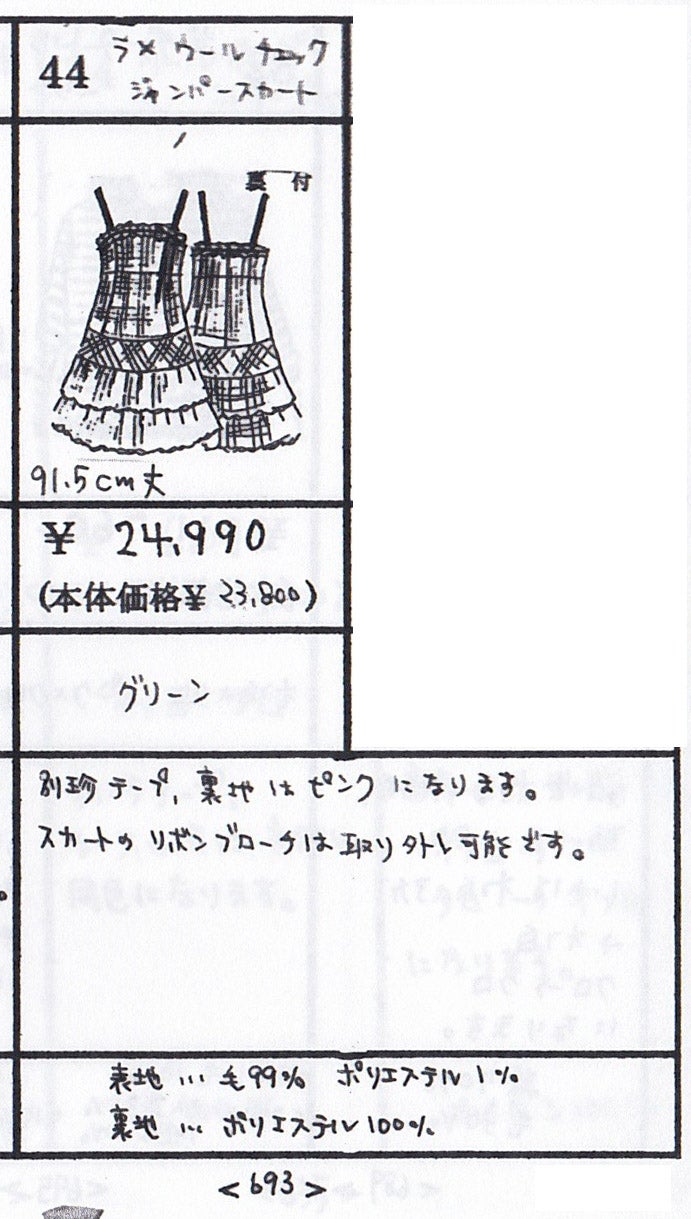 44 ラメ ウール チェック
ジャンパースカート
裏 付
91.5cm丈
¥ 24,990
(本体価格¥ 23,800)
グリーン
別珍テープ、裏地はピンクになります。
スカートのリボンブローチは取り外し可能です。
表地 … 毛99% ポリエステル1%
裏地 … ポリエステル100%
<693>